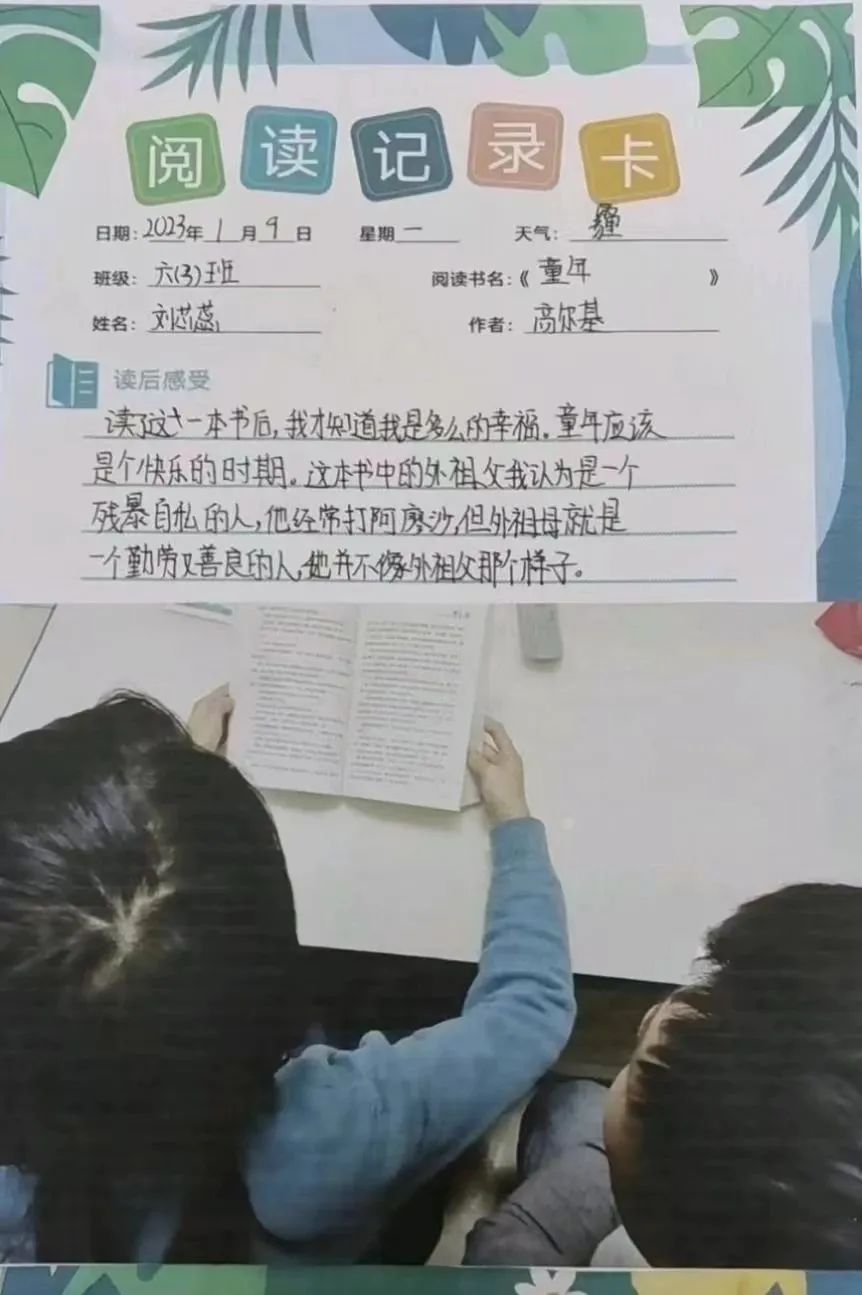 阅读记录卡
日期：2023年1月9日 星期一 天气：霾
班级：六(3)班 阅读书名：《童年》
姓名：刘芯蕊 作者：高尔基
读后感受
读了这一本书后，我才知道我是多么的幸福。童年应该
是个快乐的时期。这本书中的外祖父我认为是一个
残暴自私的人，他经常打阿廖沙，但外祖母就是
一个勤劳又善良的人，她并不像外祖父那个样子。